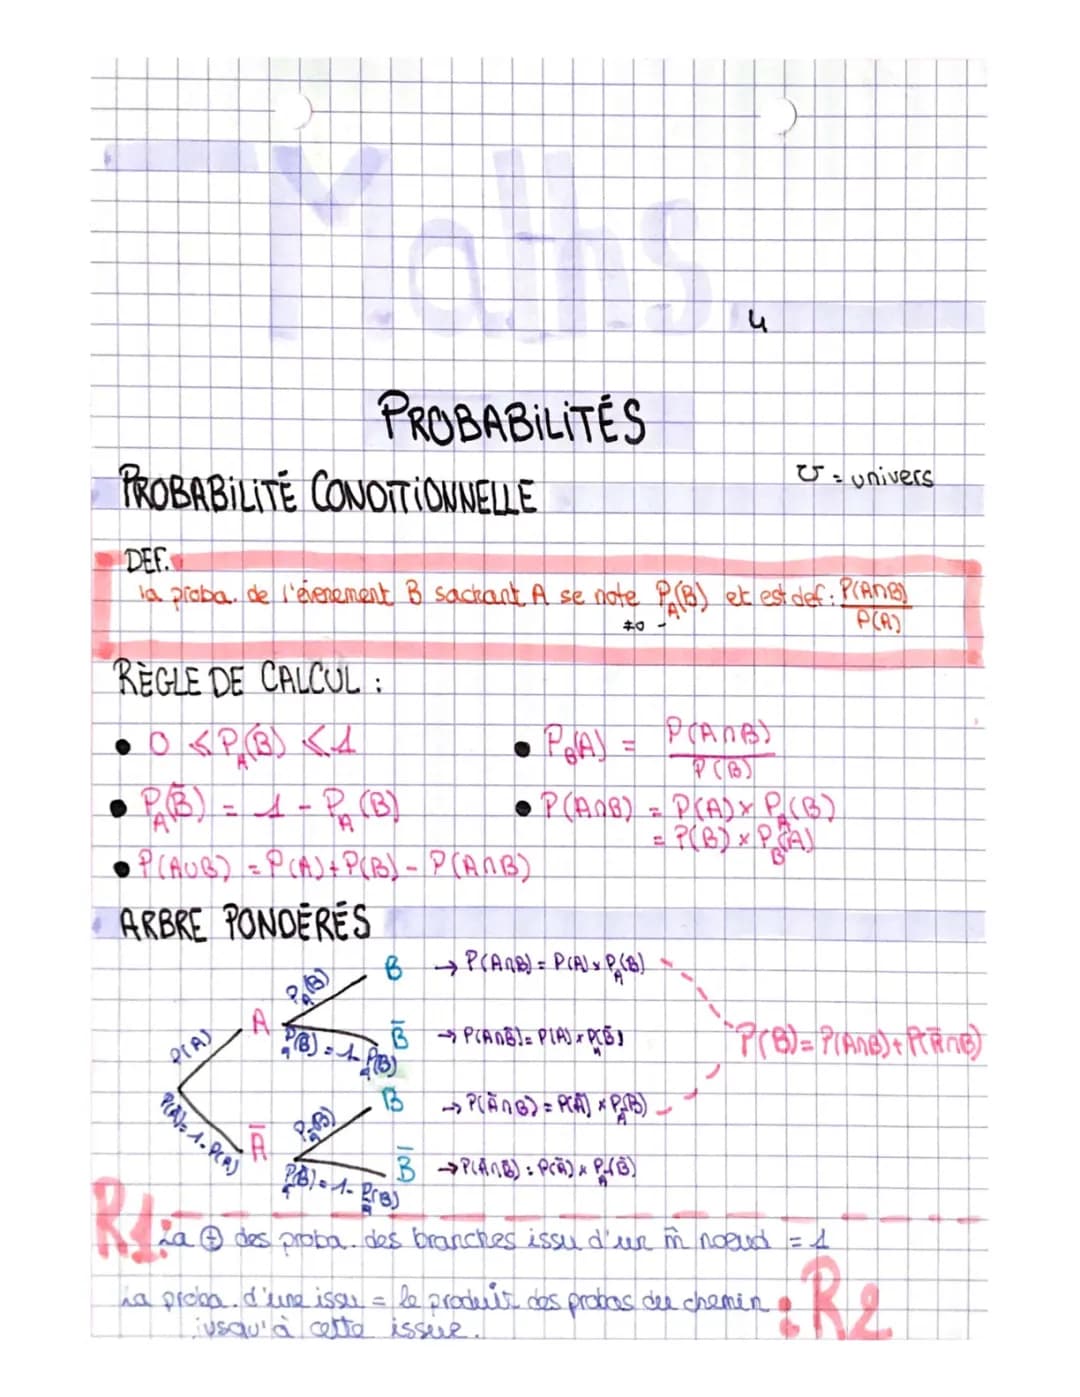 Maths
4
PROBABILITÉS
PROBABILITÉ CONDITIONNELLE
U = univers
DEF.
la proba. de l'évenement B sachant A se note P_A(B) et est def : P(A∩B)/P(A)
≠0
RÈGLE DE CALCUL :
• 0 ⩽ P_A(B) ⩽ 1
• P_B(A) = P(A∩B)/P(B)
• P_A(B̄) = 1 - P_A(B)
• P(A∩B) = P(A) × P_A(B)
= P(B) × P_B(A)
• P(A∪B) = P(A) + P(B) - P(A∩B)
ARBRE PONDÉRÉS
P_A(B)
B → P(A∩B) = P(A) × P_A(B)
P(A)
A
P_A(B̄) = 1 - P_A(B)
B̄ → P(A∩B̄) = P(A) × P_A(B̄)
P(B) = P(A∩B) + P(Ā∩B)
P(Ā) = 1 - P(A)
Ā
P_Ā(B)
B → P(Ā∩B) = P(Ā) × P_Ā(B)
P_Ā(B̄) = 1 - P_Ā(B)
B̄ → P(Ā∩B̄) : P(Ā) × P_Ā(B̄)
R1 : La ⊕ des proba. des branches issu d'un m̂ noeud = 1
La proba. d'une issu = le produit des probas du chemin : R2
jusqu'à cette issue.